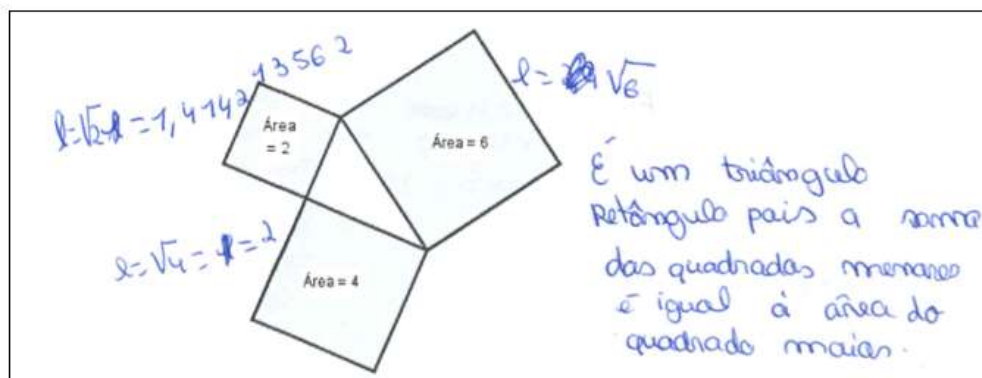 l=√2 = 1,414213562
l= √6
Área
= 2
Área = 6
É um triângulo
Retângulo pois a soma
das quadradas menores
é igual à área do
quadrado maior.
l=√4 = l=2
Área = 4